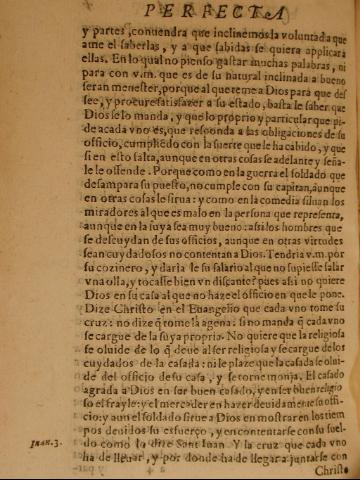 PERFECTA
y partes, conuendra que inclinemos la voluntad a que
ame el saberlas, y a que sabidas se quiera applicar a
ellas. En lo qual no pienso gastar muchas palabras, ni
para con v.m. que es de su natural inclinada a bueno
seran menester, porque al que teme a Dios para que des
see, y procure satisfazer a su estado, basta le saber que
Dios se lo manda, y que lo proprio y particular que pi-
de a cada vno es, que responda a las obligaciones de su
officio, cumpliẽdo con la suerte que le ha cabido, y que
si en esto falta, aunque en otras cosas se adelante y seña-
le le offende. Porque como en la guerra el soldado que
desampara su puesto, no cumple con su capitan, aunque
en otras cosas le sirua: y como en la comedia siluan los
miradores al que es malo en la persona que representa,
aunque en la suya sea muy bueno: assi los hombres que
se descuydan de sus officios, aunque en otras virtudes
sean cuydadosos no contentan a Dios. Tendria v.m. por
su cozinero, y daria le su salario al que no supiesse salar
vna olla, y tocasse bien vn discante? pues assi no quiere
Dios en su casa al que no haze el officio en que le pone.
Dize Christo en el Euangelio que cada vno tome su
cruz: no dize q̃ tome la agena: si no manda q̃ cada vno
se cargue de la suya propria. No quiere que la religiosa
se oluide de lo q̃ deue al ser religiosa y se cargue de los
cuydados de la casada: ni le plaze que la casada se olui-
de del officio de su casa, y se torne monja. El casado
agrada a Dios en ser buen casado, y en ser buen religio
so el frayle: y el mercader en hazer deuidamente su offi-
cio: y aun el soldado sirue a Dios en mostrar en los tiem
pos deuidos su esfuerço, y en contentarse con su suel-
do como lo dize Sant Iuan. Y la cruz que cada vno
ha de lleuar, y por donde ha de llegar a juntarse con
Christo
IVAN. 3.